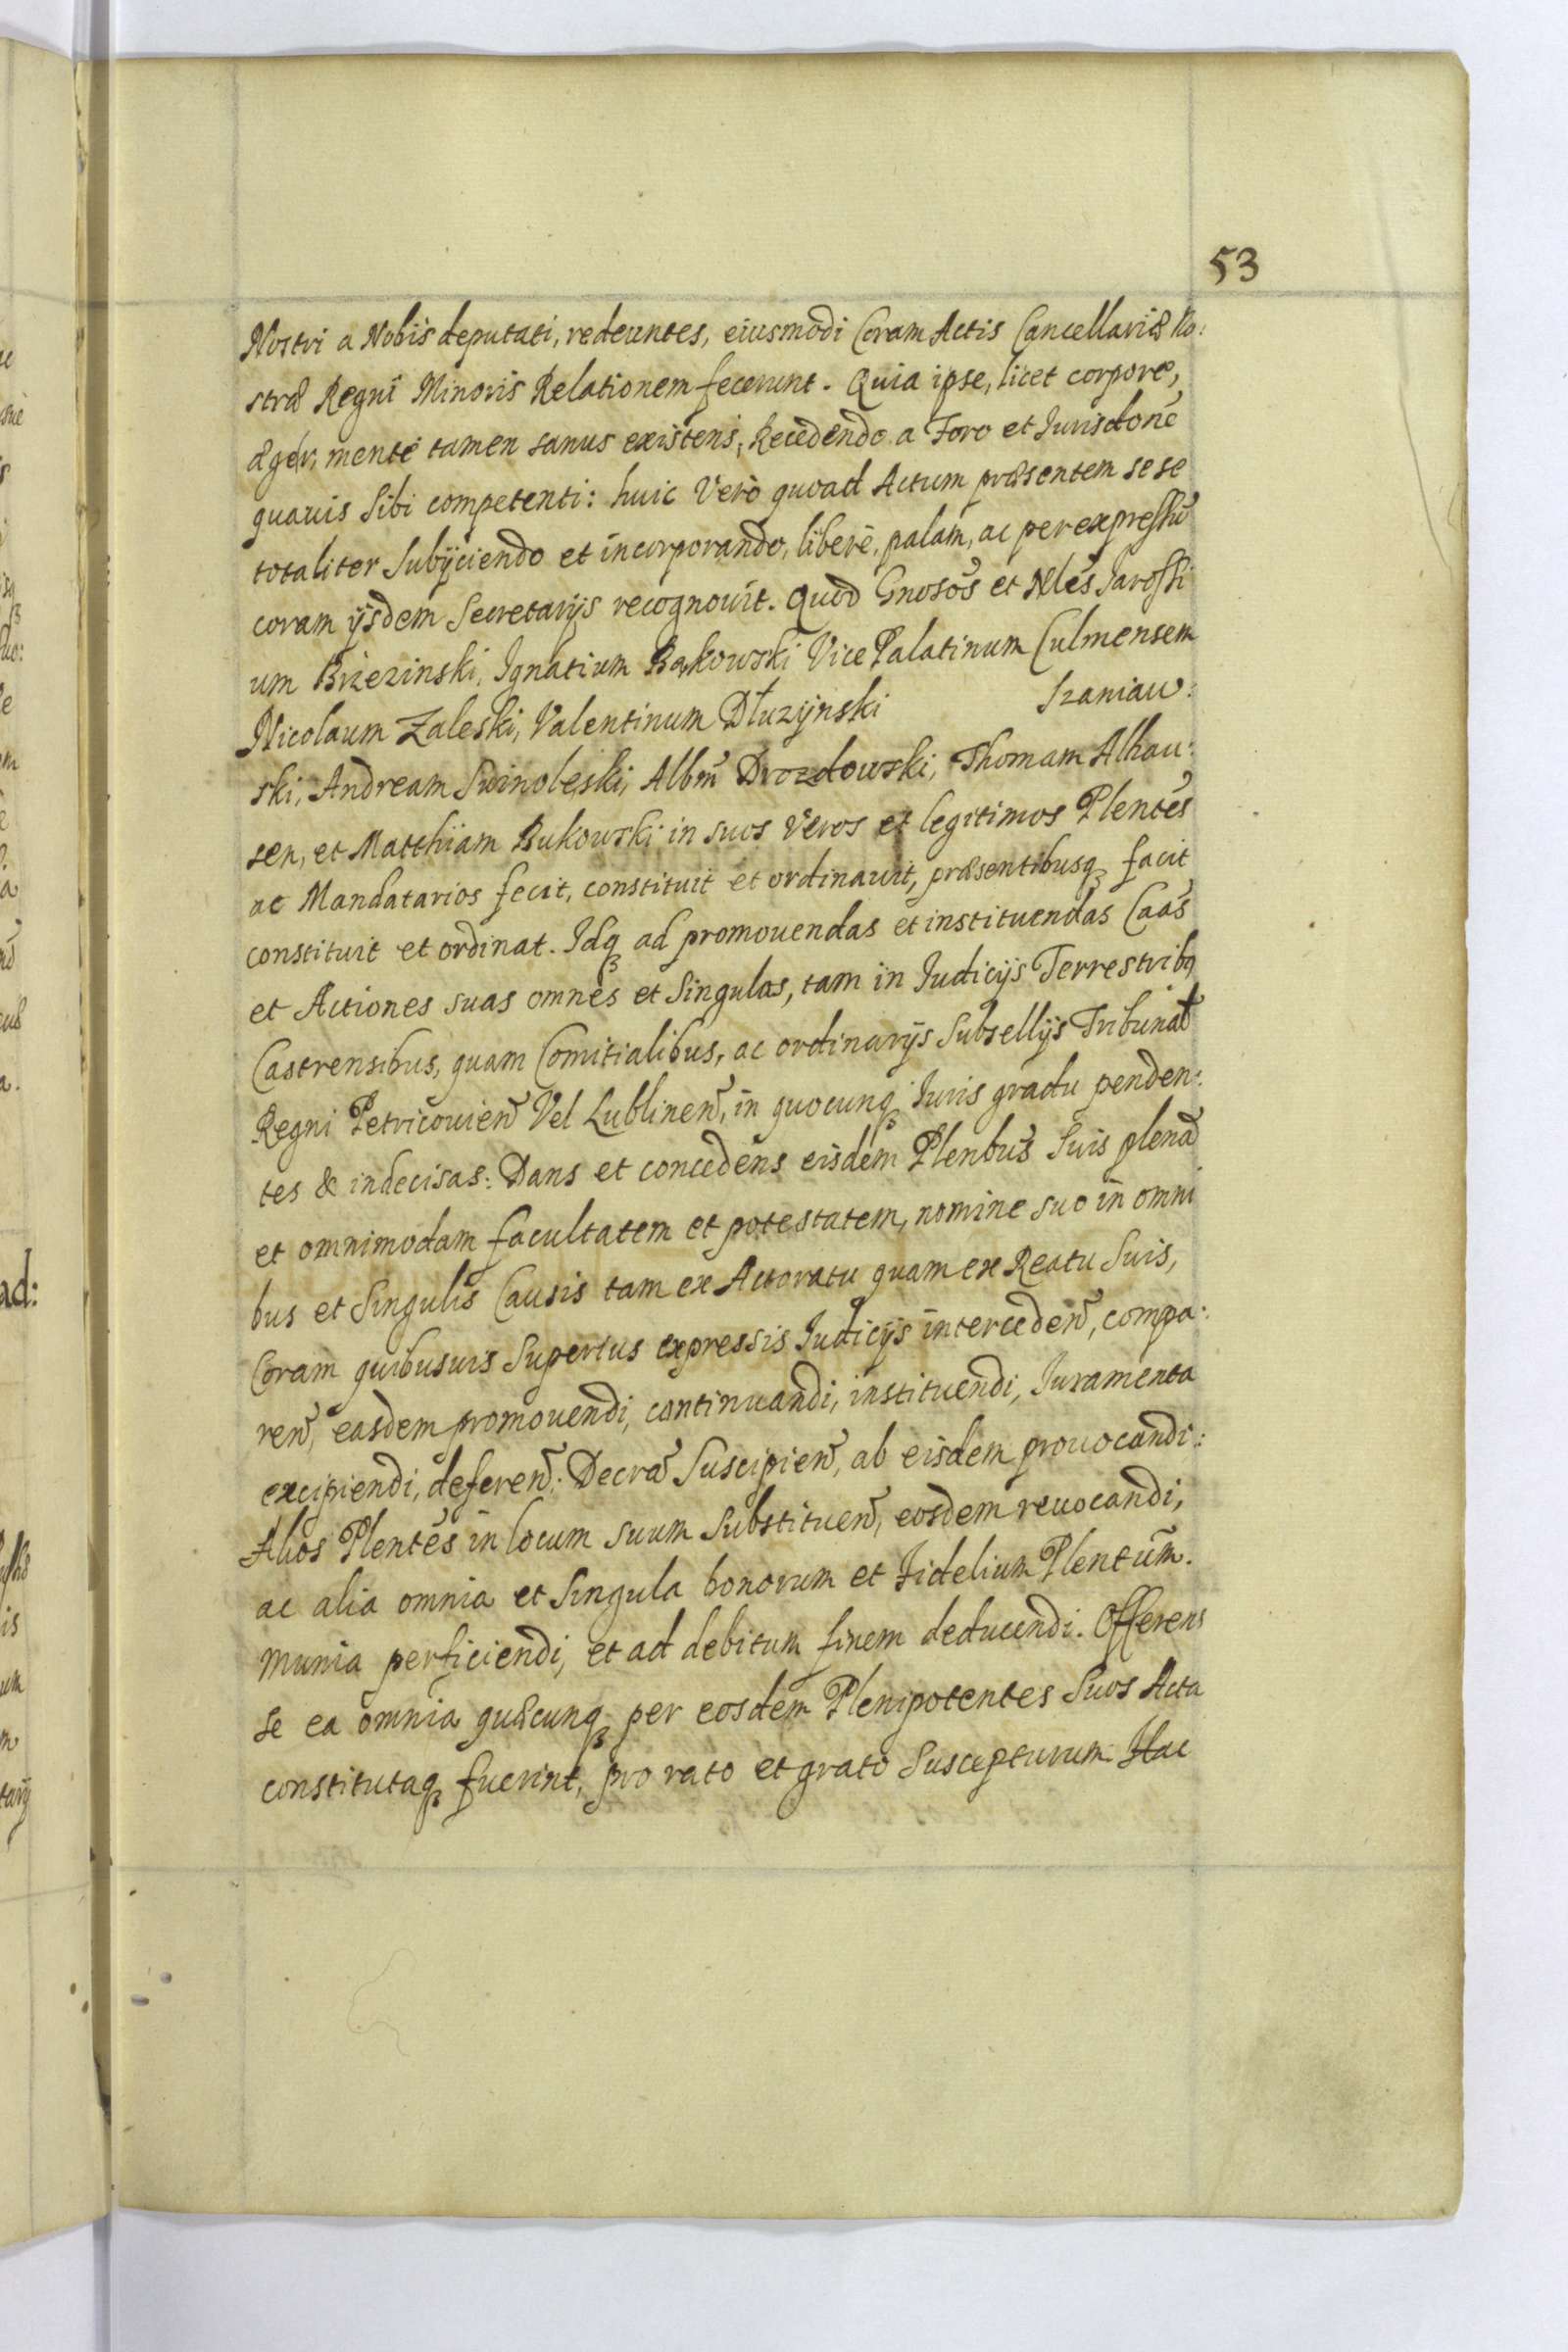 53
Nostri a Nobis deputati, redeuntes, eiusmodi Coram Actis Cancellariæ No:
stræ Regni Minoris Relationem fecerunt. Quia ipse, licet corpore,
æger, mente tamen sanus existens, Recedendo a Foro et Jurisdone
quavis Sibi competenti: huic Verò quoad Actum præsentem sese
totaliter Subijciendo et incorporando, liberè, palam, ac per expressũ
coram ijsdem Secretarijs recognouit. Quod Gnosos et Nles Jarossi
um Brzezinski, Ignatium Bąkowski Vice Palatinum Culmensem
Nicolaum Zaleski, Valentinum Dłuzynski Szaniaw:
ski, Andream Swinoleski, Albm̃ Drozdowski, Thomam Alhau:
sen, et Matthiam Bukowski in suos Veros et legitimos Plentes
ac Mandatarios fecit, constituit et ordinauit, præsentibusq₃ facit
constituit et ordinat. Idq₃ ad promouendas et instituendas Caas
et Actiones suas omnes et Singulas, tam in Judicijs Terrestribq
Castrensibus, quam Comitialibus, ac ordinarijs Subsellijs Tribunał
Regni Petricouień Vel Lublineñ, in quocunq₃ Iuris gradu penden:
tes & indecisas: Dans et concedens eisdem Plenbus Suis plenã
et omnimodam facultatem et potestatem, nomine suo in omni
bus et Singulis Causis tam ex Actoratu quam ex Reatu Suis,
Coram quibusuis Superius expressis Judicijs intercedeñ, compa:
reñ, easdem promouendi, continuandi, instituendi, Juramenta
excipiendi, defereñ: Decrã Suscipieñ, ab eisdem prouocandi:
Alios Plentes in locum suum Substitueñ, eosdem reuocandi,
ac alia omnia et Singula bonorum et Fidelium Plentũm.
munia perficiendi, et ad debitum finem deducendi. Offerens
se ea omnia quæcunq₃ per eosdem Plenipotentes Suos Acta
constitutaq₃ fuerint, pro rato et grato Suscepturum Hac